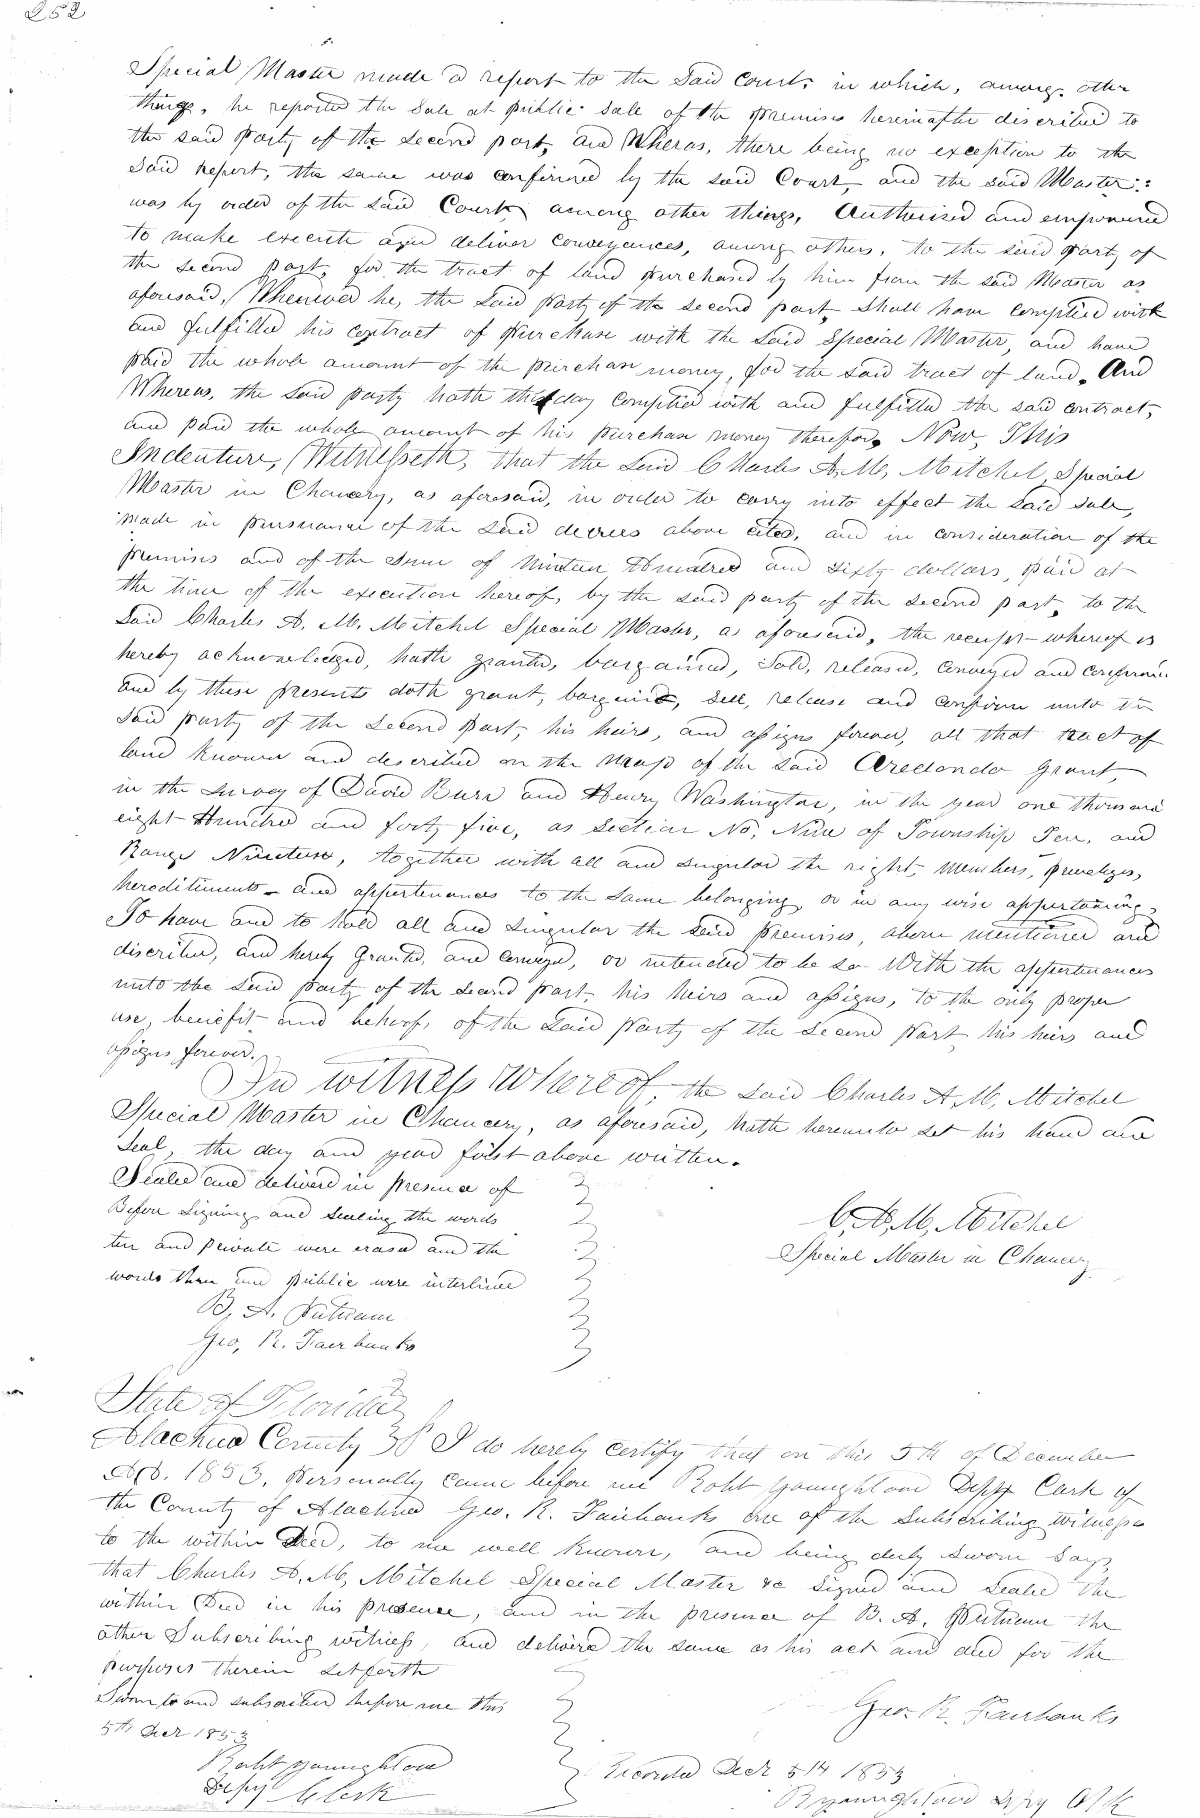 252
Special Master made a report to the said Court, in which, among other
things, he reported the sale at public sale of the premises hereinafter discribed to
the said party of the second part, and Wheras, there being no exception to the
said report, the same was confirmed by the said Court, and the said Master
was by order of the said Court, among other things, Authorised and empowered
to make execute and deliver conveyances, among others, to the said party of
the second part, for the tract of land purchased by him from the said Master as
aforesaid, Whenever he, the said party of the second part, shall have complied with
and fulfilled his contract of purchase with the said Special Master, and have
paid the whole amount of the purchase money, for the said tract of land. And
Whereas, the said party hath this day complied with and fulfilled the said contract,
and paid the whole amount of his purchase money therefor. Now, This
Indenture, Witnesseth, that the said Charles A. M. Mitchel, Special
Master in Chancery, as aforesaid, in order to carry into effect the said sale,
made in pursuance of the said decrees above cited, and in consideration of the
premises and of the sum of Nineteen Hundred and sixty dollars, paid at
the time of the execution hereof, by the said party of the second part, to the
said Charles A. M. Mitchel Special Master, as aforesaid, the receipt whereof is
hereby acknowledged, hath granted, bargained, sold, released, conveyed and confirmed
and by these presents doth grant, bargain, sell, release and confirm unto the
said party of the second part, his heirs, and assigns forever, all that tract of
land known and described on the map of the said Aredondo Grant,
in the survey of David Burr and Henry Washington, in the year one thousand
eight Hundred and forty five, as Section No, Nine of Township Ten, and
Range Nineteen, together with all and singular the right, members, priveliges,
hereditiments and appertenances to the same belonging, or in any wise appertaining,
To have and to hold all and singular the said premises, above mentioned and
discribed, and hereby granted, and conveyed, or intended to be so With the appertenances
unto the said party of the second part, his heirs and assigns, to the only proper
use, benefit and behoof, of the said party of the second part, his heirs and
assigns forever.
In witness Whereof, the said Charles A. M. Mitchel
Special Master in Chancery, as aforesaid, hath hereunto set his hand and
seal, the day and year first above written.
Sealed and delivered in presence of
Before signing and sealing the words
ten and private were erased and the
words three and public were interlined
B. A. Putnam
Geo, R. Fairbanks
C. A. M. Mitchel
Special Master in Chancery
State of Florida
Alachua County I do hereby certify that on this 5th of December
A.D. 1853, personally came before me Robt Youngblood Depy Clerk of
the County of Alachua Geo. R. Fairbanks one of the subscribing witness
to the within Deed, to me well known, and being duly sworn says,
that Charles A. M. Mitchel Special Master &c signed and sealed the
within Deed in his presence, and in the presence of B. A. Putnam the
other Subscribing witness, and delivered the same as his act and deed for the
purposes therein setforth
Sworn to and subscribed before me this
5th Decr 1853
Geo. R. Fairbanks
Robt Youngblood
Depy Clerk
Recorded Decr 5th 1853
R Youngblood Dpy Clk